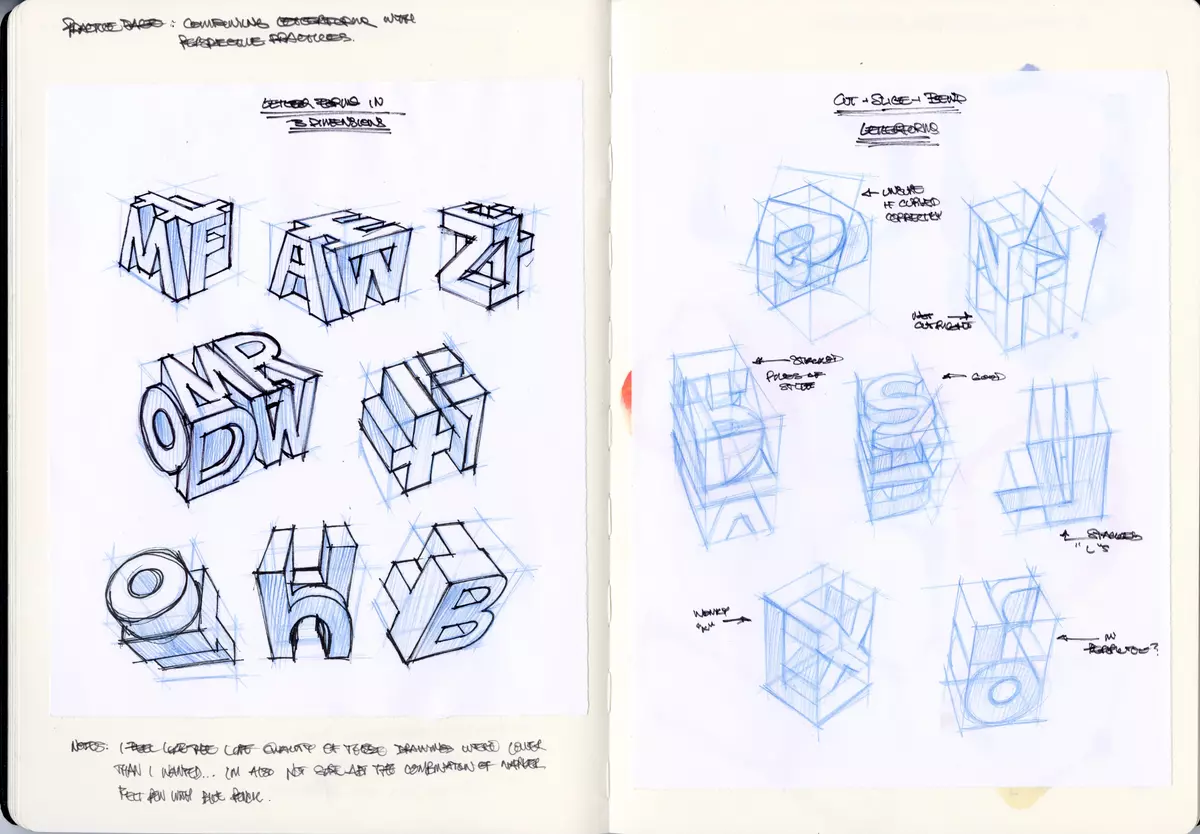 PRACTICE PAGES: COMBINING LETTERFORMS WITH
PERSPECTIVE PRACTICES.
LETTER FORMS IN
3 DIMENSIONS
M F
A W
Z
M R
O D W
H
O L
H
B
NOTES: I FEEL LIKE THE LINE QUALITY OF THESE DRAWINGS WERE LOWER
THAN I WANTED... I'M ALSO NOT SURE THE COMBINATION OF MARKER
FELT PEN WITH BLUE PENCIL.
CUT + SLICE + BEND
LETTERFORMS
UNSURE
IF CURVED
CORRECTLY
NOT
CUT RIGHT
STACKED
STACKED
"L"S
GOOD
WONKY
IN
PERSPECTIVE?